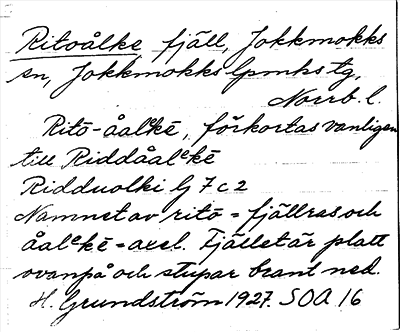 Ritoålke, fjäll, Jokkmokks
sn, Jokkmokks lpmks tg,
Norrb. l.
Rito-åalᵉké, förkortas vanligen
till Riddåalᵉké
Ridduolki G 7 c 2
Namnet av rito = fjällras och
åalᵉké = axel. Fjället är platt
ovanpå och stupar brant ned.
H. Grundström 1927. SOA 16